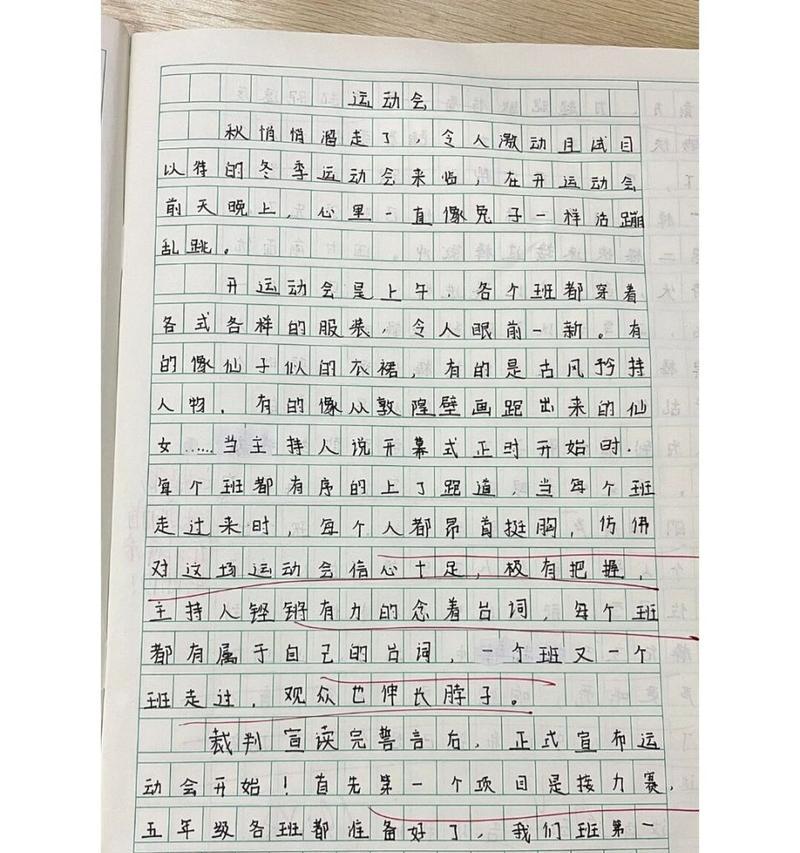 运动会
秋悄悄溜走了，令人激动且试目
以待的冬季运动会来临，在开运动会
前天晚上，心里一直像兔子一样活蹦
乱跳。
开运动会是上午，各个班都穿着
各式各样的服装，令人眼前一新。有
的像仙子似的衣裙，有的是古风矜持
人物，有的像从敦煌壁画跑出来的仙
女……当主持人说开幕式正时开始时.
每个班都有序的上了跑道，当每个班
走过来时，每个人都昂首挺胸，仿佛
对这场运动会信心十足，极有把握，
主持人铿锵有力的念着台词，每个班
都有属于自己的台词，一个班又一个
班走过，观众也伸长脖子。
裁判宣读完誓言后，正式宣布运
动会开始！首先第一个项目是接力赛，
五年级各班都准备好了，我们班第一